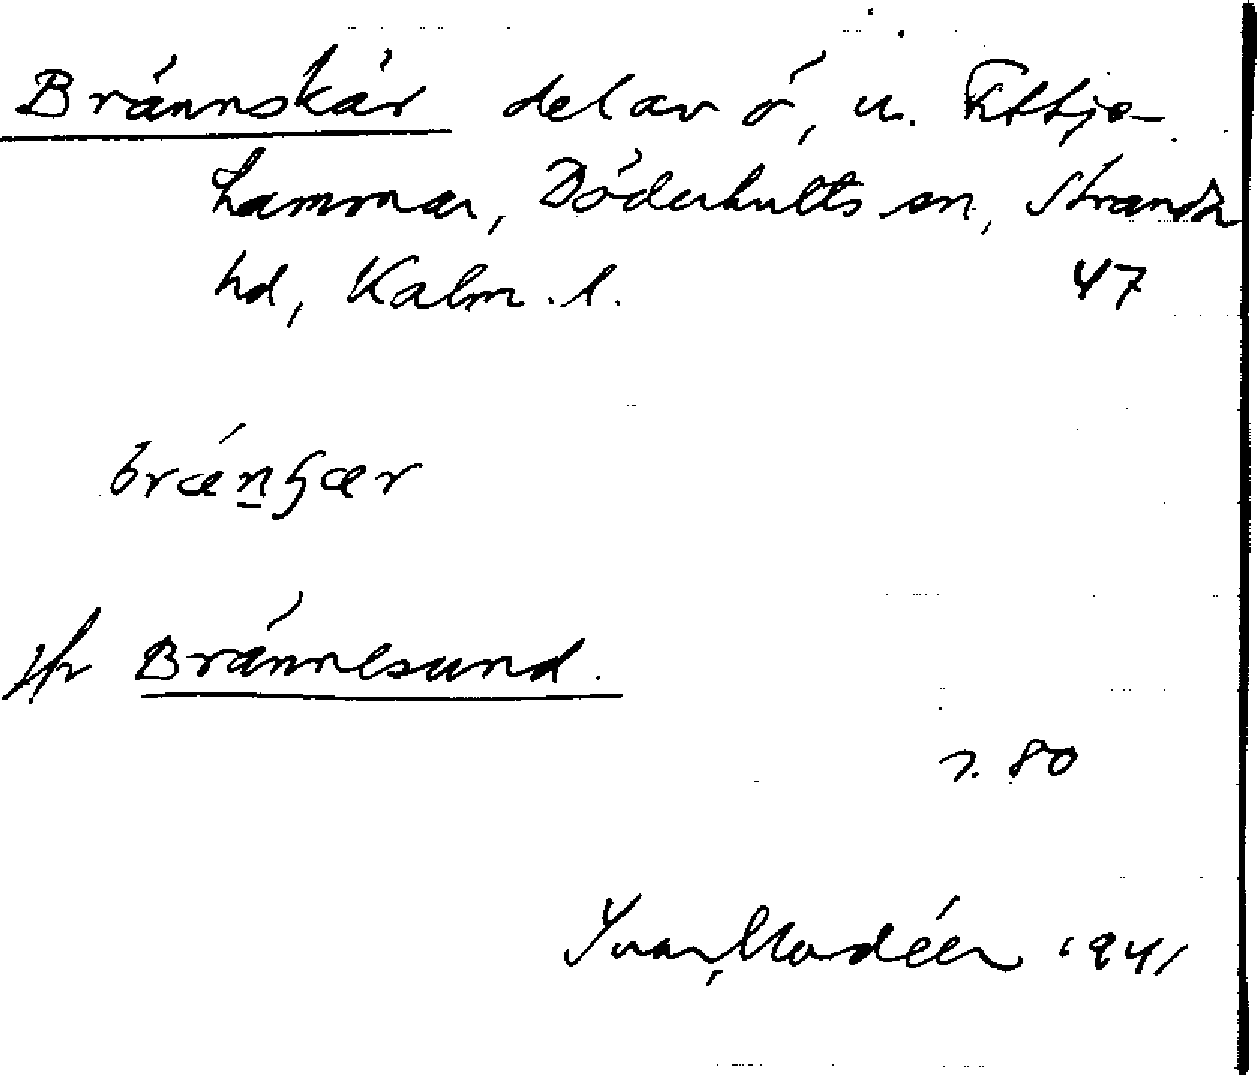 Brännskär del av ö, u. Fittja-
hammar, Döderhults sn, Stranda
hd, Kalm. l. 47
brǽnʂær
jfr Brännesund.
s. 80
Ivar Modéer 1941